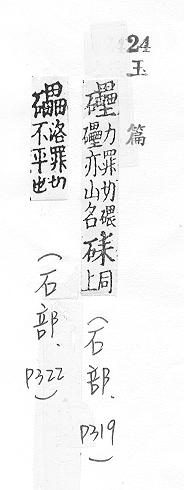 24
玉篇
力罪切碨
亦山名
同上
(石部. P319)
礧洛罪切
不平也
(石部. P322)